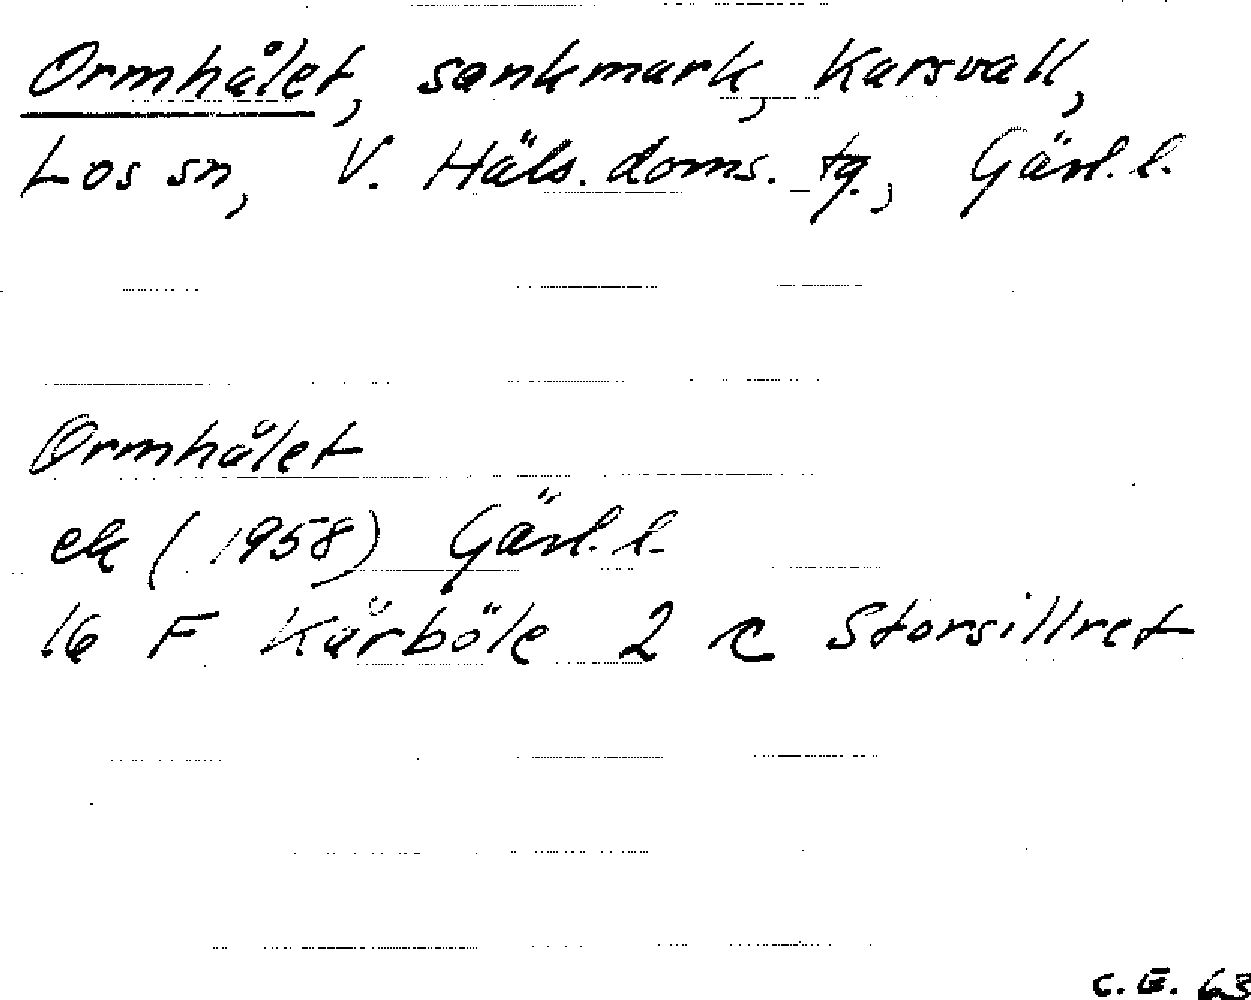 Ormhålet, sankmark, Karsvall,
Los sn, V. Häls. doms. tg., Gävl. l.
Ormhålet
ek (1958) Gävl. l.
16 F Kårböle 2 c Storsillret
C. E. 63